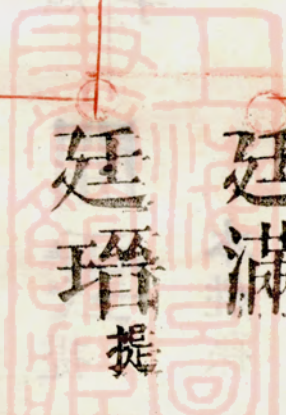 廷滿
廷瑨
提